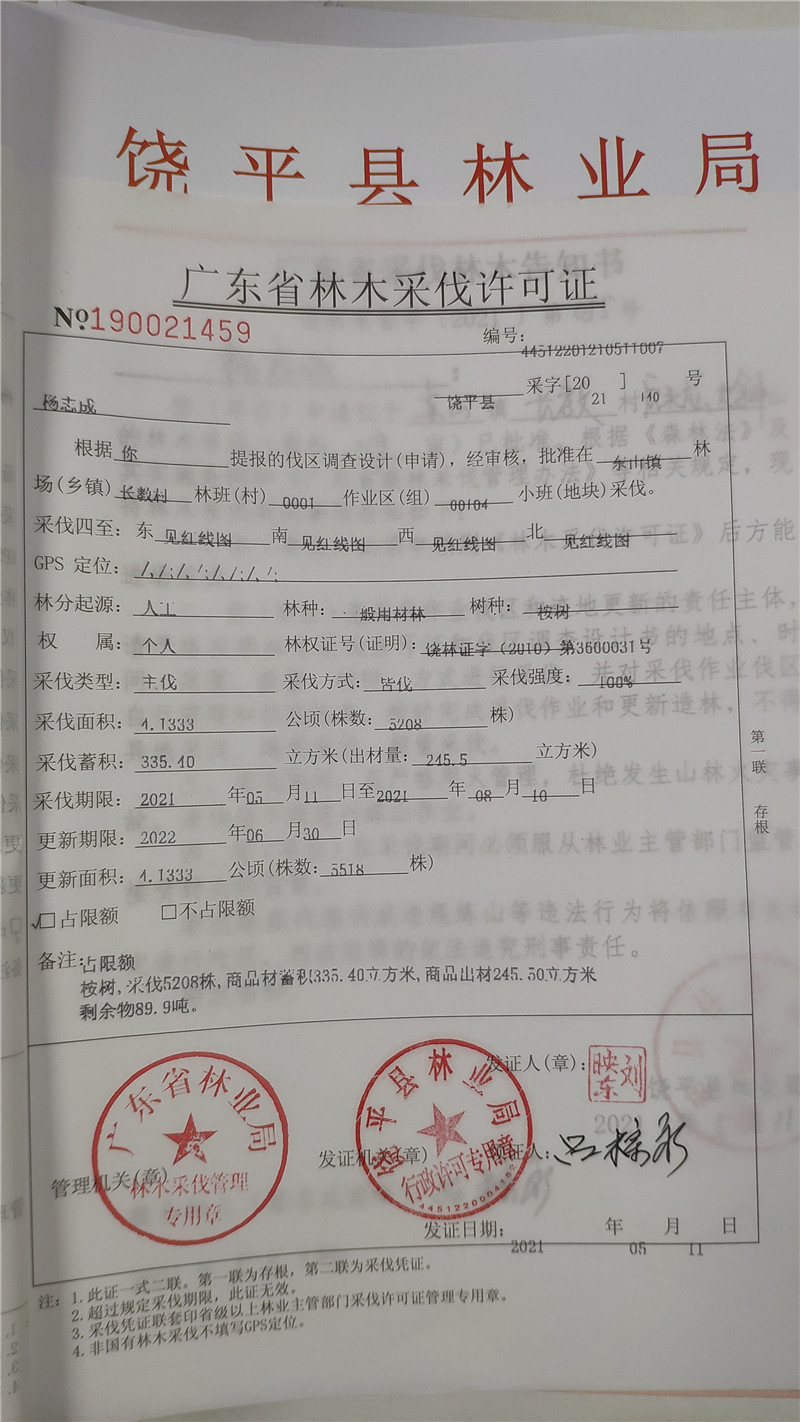 饶平县林业局
广东省林木采伐许可证
№190021459
编号: 44512201210511007
杨志成 饶平县 采字[2021]140号
根据 你 提报的伐区调查设计(申请), 经审核, 批准在 东山镇 林
场(乡镇) 长教村 林班(村) 0001 作业区(组) 00104 小班(地块)采伐。
采伐四至: 东 见红线图 南 见红线图 西 见红线图 北 见红线图
GPS 定位: /,/;/,/;/,/;/,/;
林分起源: 人工 林种: 一般用材林 树种: 桉树
权 属: 个人 林权证号(证明): 饶林证字(2010)第3600031号
采伐类型: 主伐 采伐方式: 皆伐 采伐强度: 100%
采伐面积: 4.1333 公顷(株数: 5208 株)
采伐蓄积: 335.40 立方米(出材量: 245.5 立方米)
采伐期限: 2021 年05 月11 日至2021 年 08 月 10 日
更新期限: 2022 年06 月30 日
更新面积: 4.1333 公顷(株数: 5518 株)
✓□占限额 □不占限额
备注: 占限额
桉树, 采伐5208株, 商品材蓄积335.40立方米, 商品出材245.50立方米
剩余物89.9吨。
第一联 存根
广东省林业局
林木采伐管理
专用章
管理机关(章)
饶平县林业局
行政许可专用章
4451220004182
发证机关(章)
发证人(章): 刘映东
领证人:
发证日期: 2021 年 05 月 11 日
注: 1. 此证一式二联。第一联为存根, 第二联为采伐凭证。
2. 超过规定采伐期限, 此证无效。
3. 采伐凭证联套印省级以上林业主管部门采伐许可证管理专用章。
4. 非国有林木采伐不填写GPS定位。